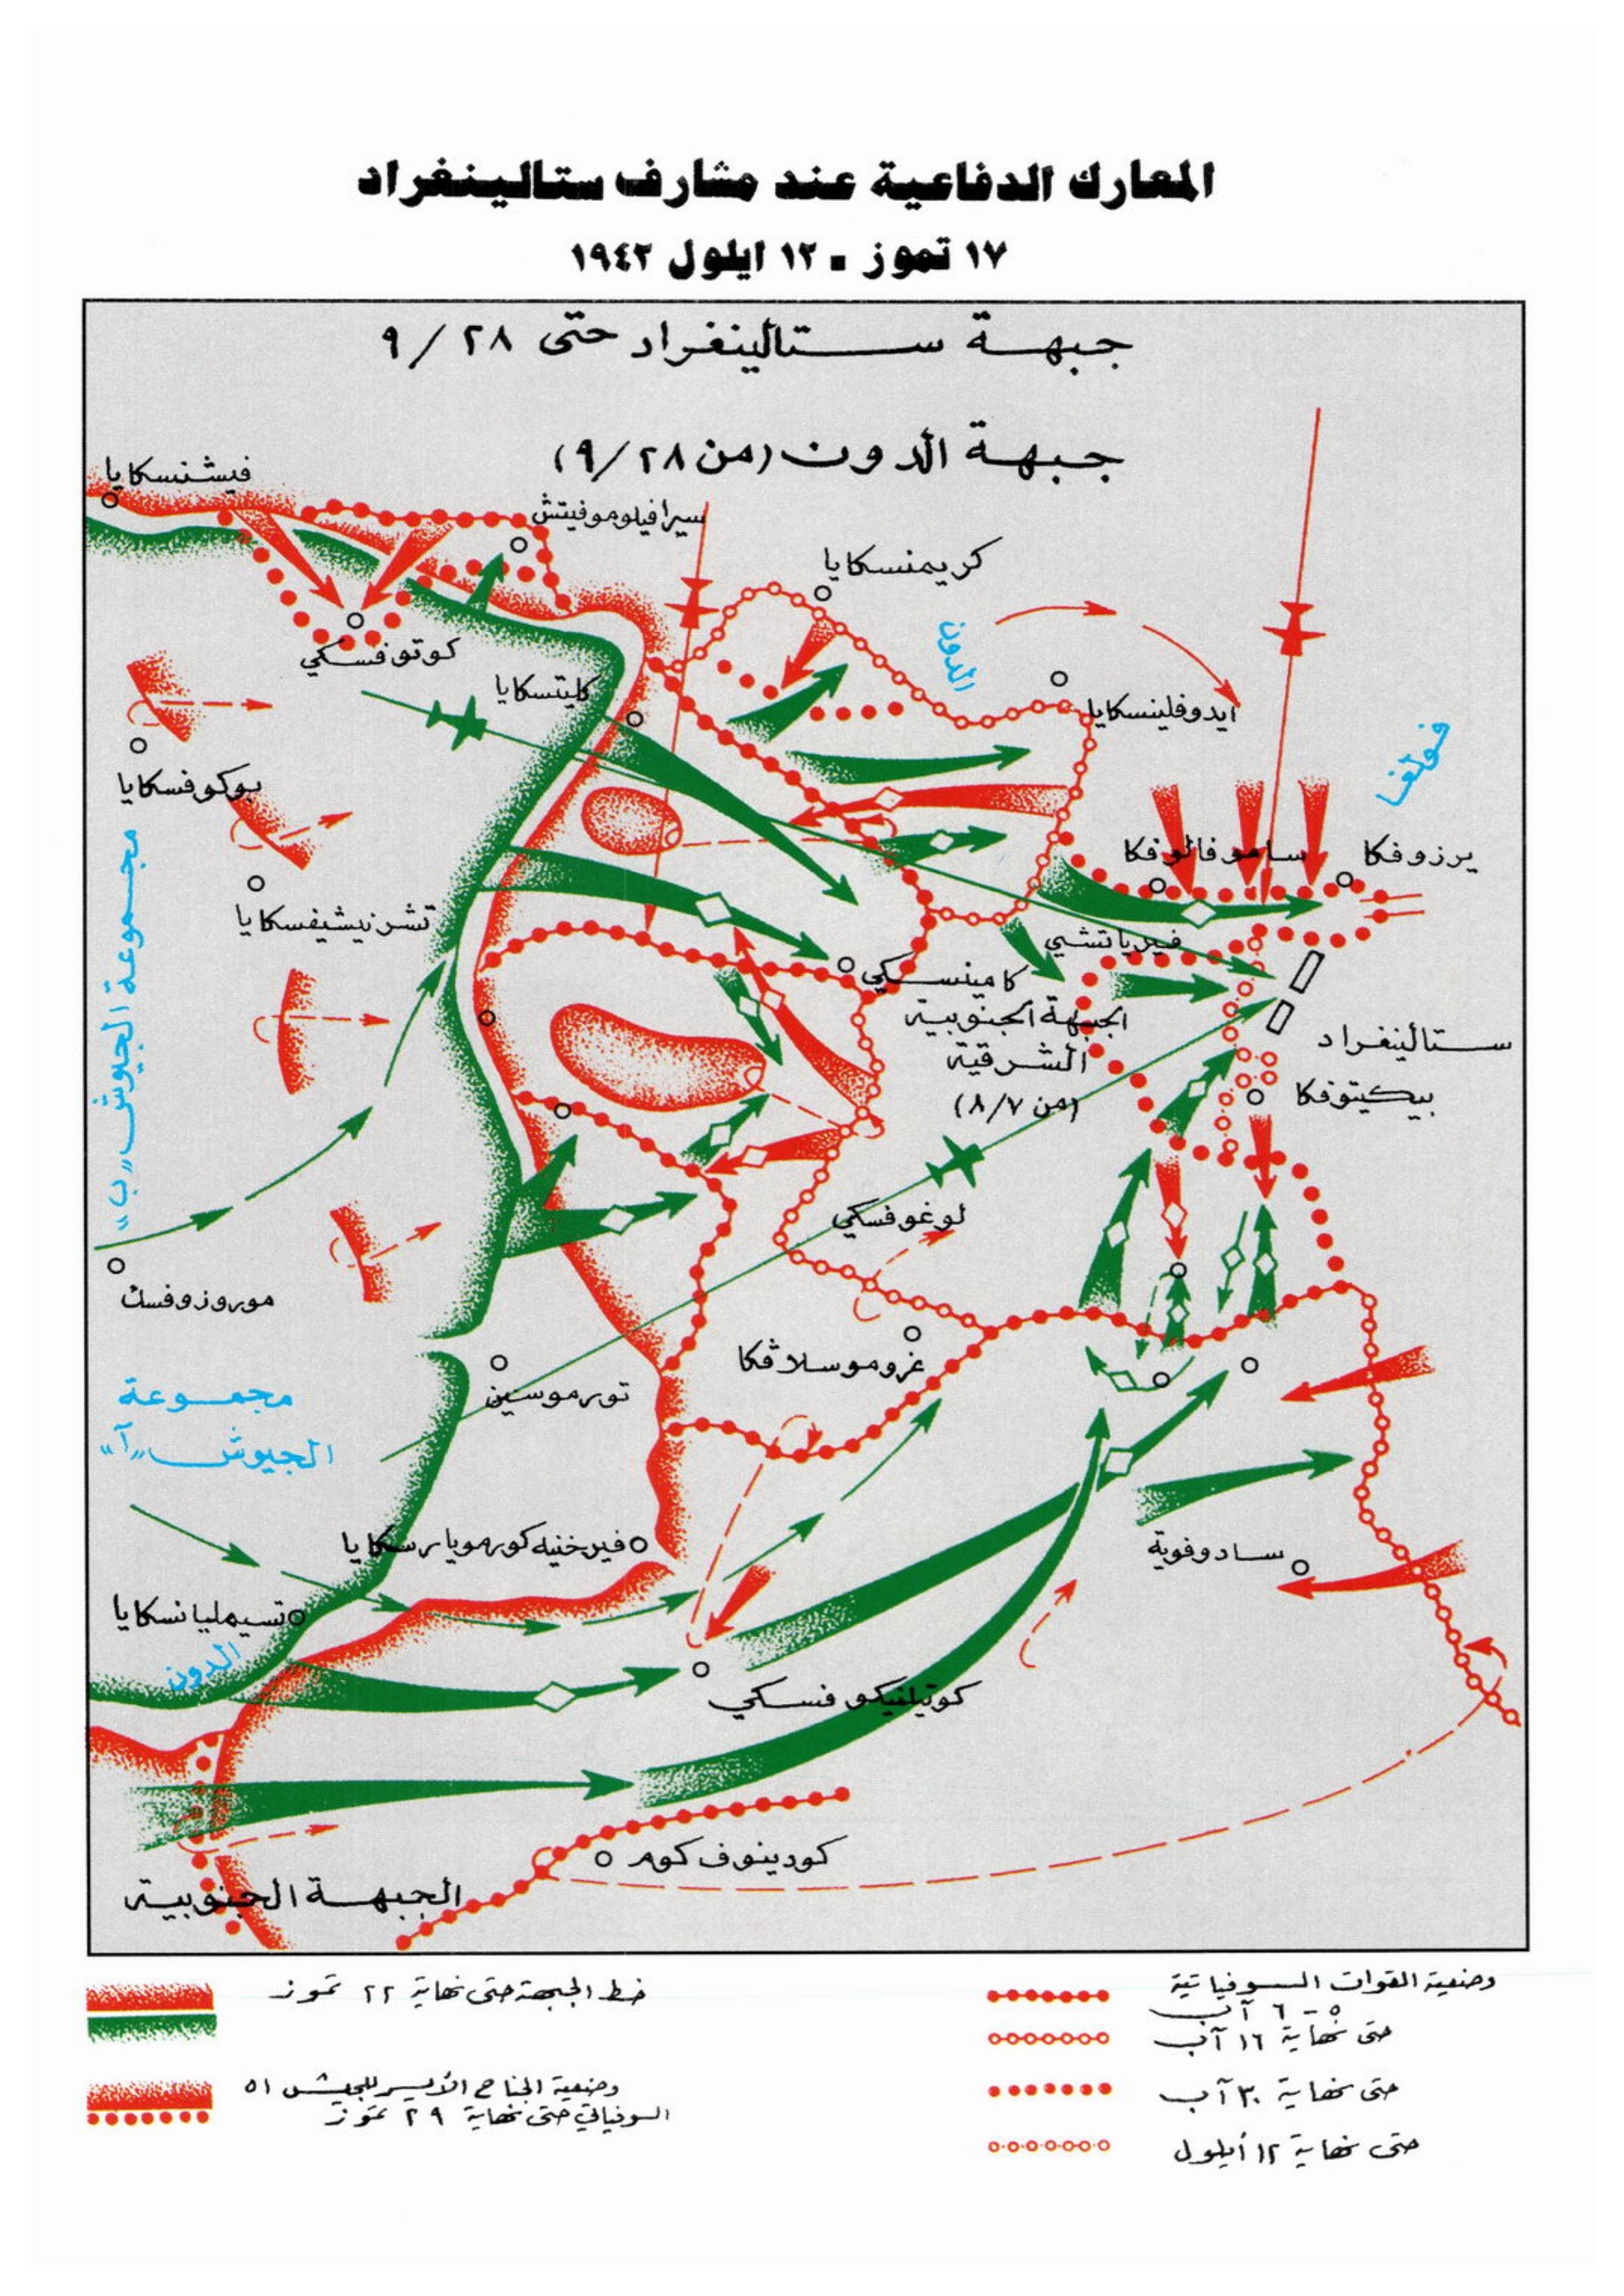 المعارك الدفاعية عند مشارف ستالينغراد
١٧ تموز - ١٢ ايلول ١٩٤٢
جبهة ستالينغراد حتى ٩/٢٨
جبهة الدون (من ٩/٢٨)
فيشنسكايا
سيرافيلوموفيتش
كريمنسكايا
الدون
كوتوفسكي
كليتسكايا
ايدوفلينسكايا
فولغا
بوكوفسكايا
ساموفالوفكا
يرزوفكا
تشرنيشيفسكايا
فيرياتشي
كامينسكي
مجموعة الجيوش "ب"
الجبهة الجنوبية
الشرقية
(من ٨/٧)
ستالينغراد
بيكيتوفكا
لوغوفسكي
موروزوفسك
غروموسلاڤكا
تورموسين
مجموعة
الجيوش "آ"
فيرخنيه كورمويارسكايا
سادوفوية
تسيمليانسكايا
الدون
كوتيلنيكوفسكي
كودينوف كوم
الجبهة الجنوبية
خط الجبهة حتى نهاية ٢٢ تموز
وضعية الجناح الأيسر للجيش ٥١
السوفياتي حتى نهاية ٢٩ تموز
وضعية القوات السوفياتية
٥ - ٦ آب
حتى نهاية ١٦ آب
حتى نهاية ٣٠ آب
حتى نهاية ١٢ أيلول